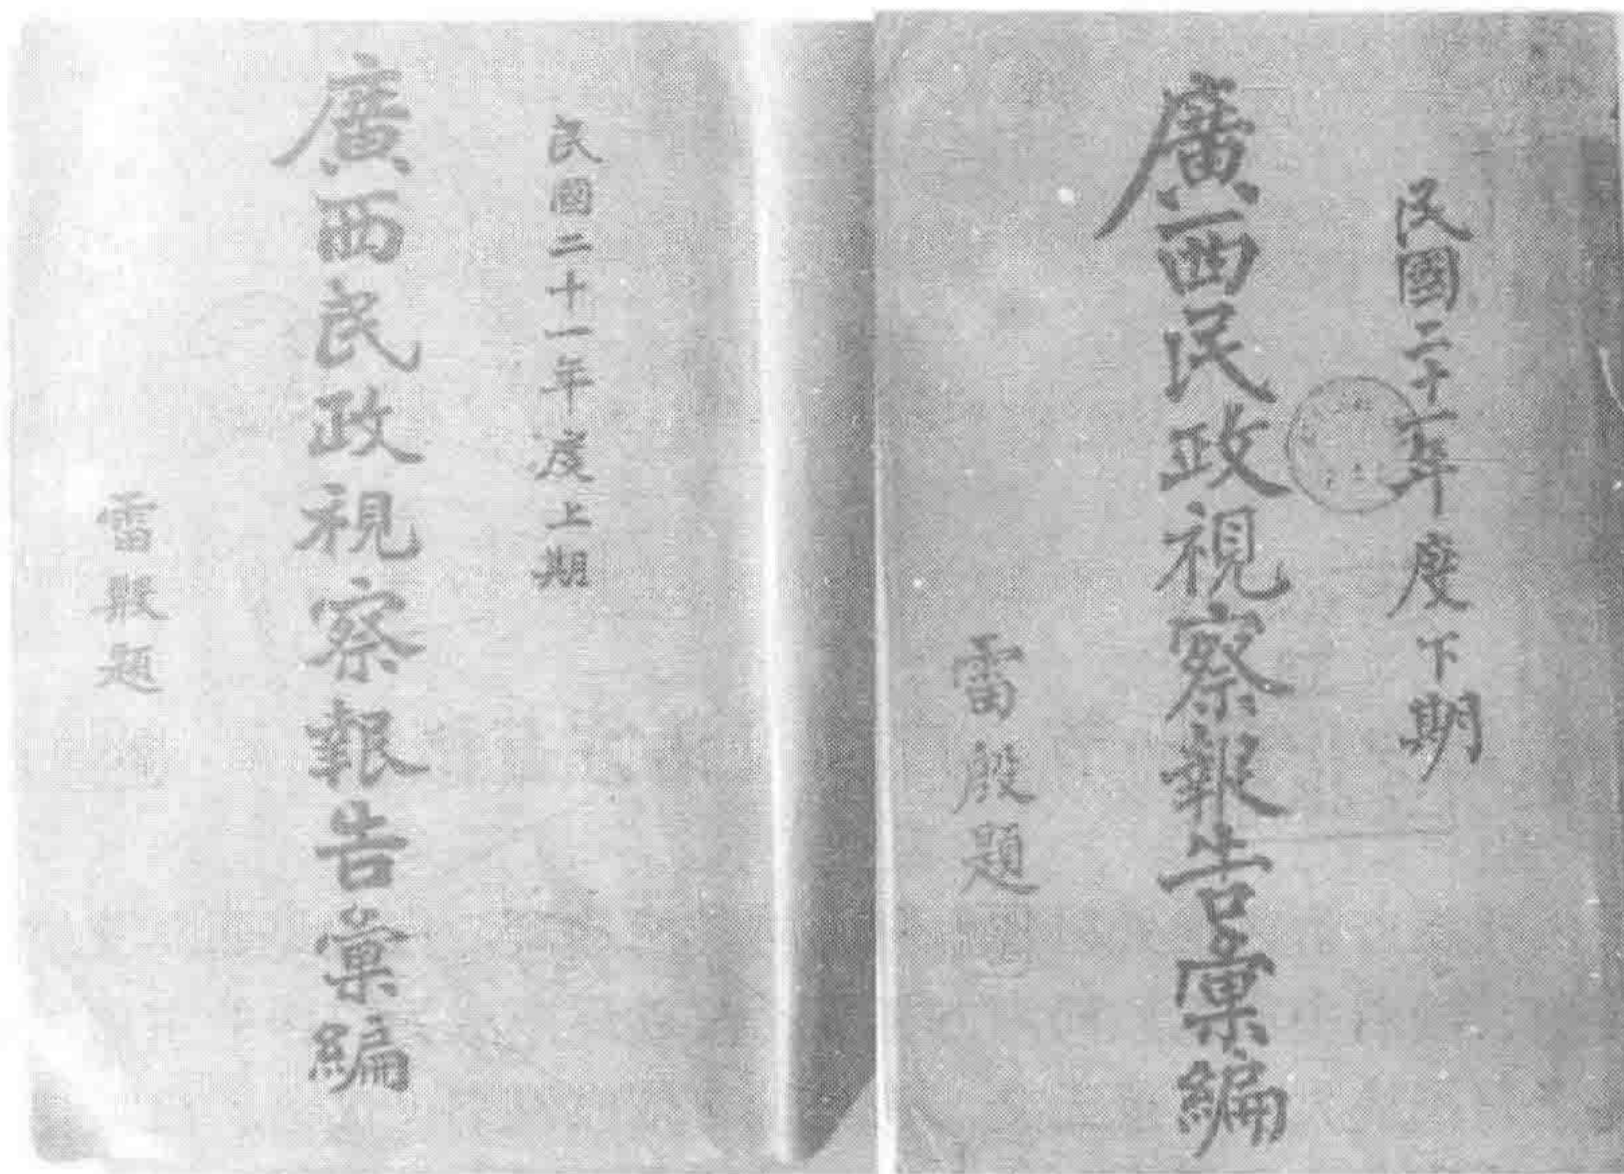 民國二十一年度上期
廣西民政視察報告彙編
雷殷題
民國二十一年度下期
廣西民政視察報告彙編
雷殷題